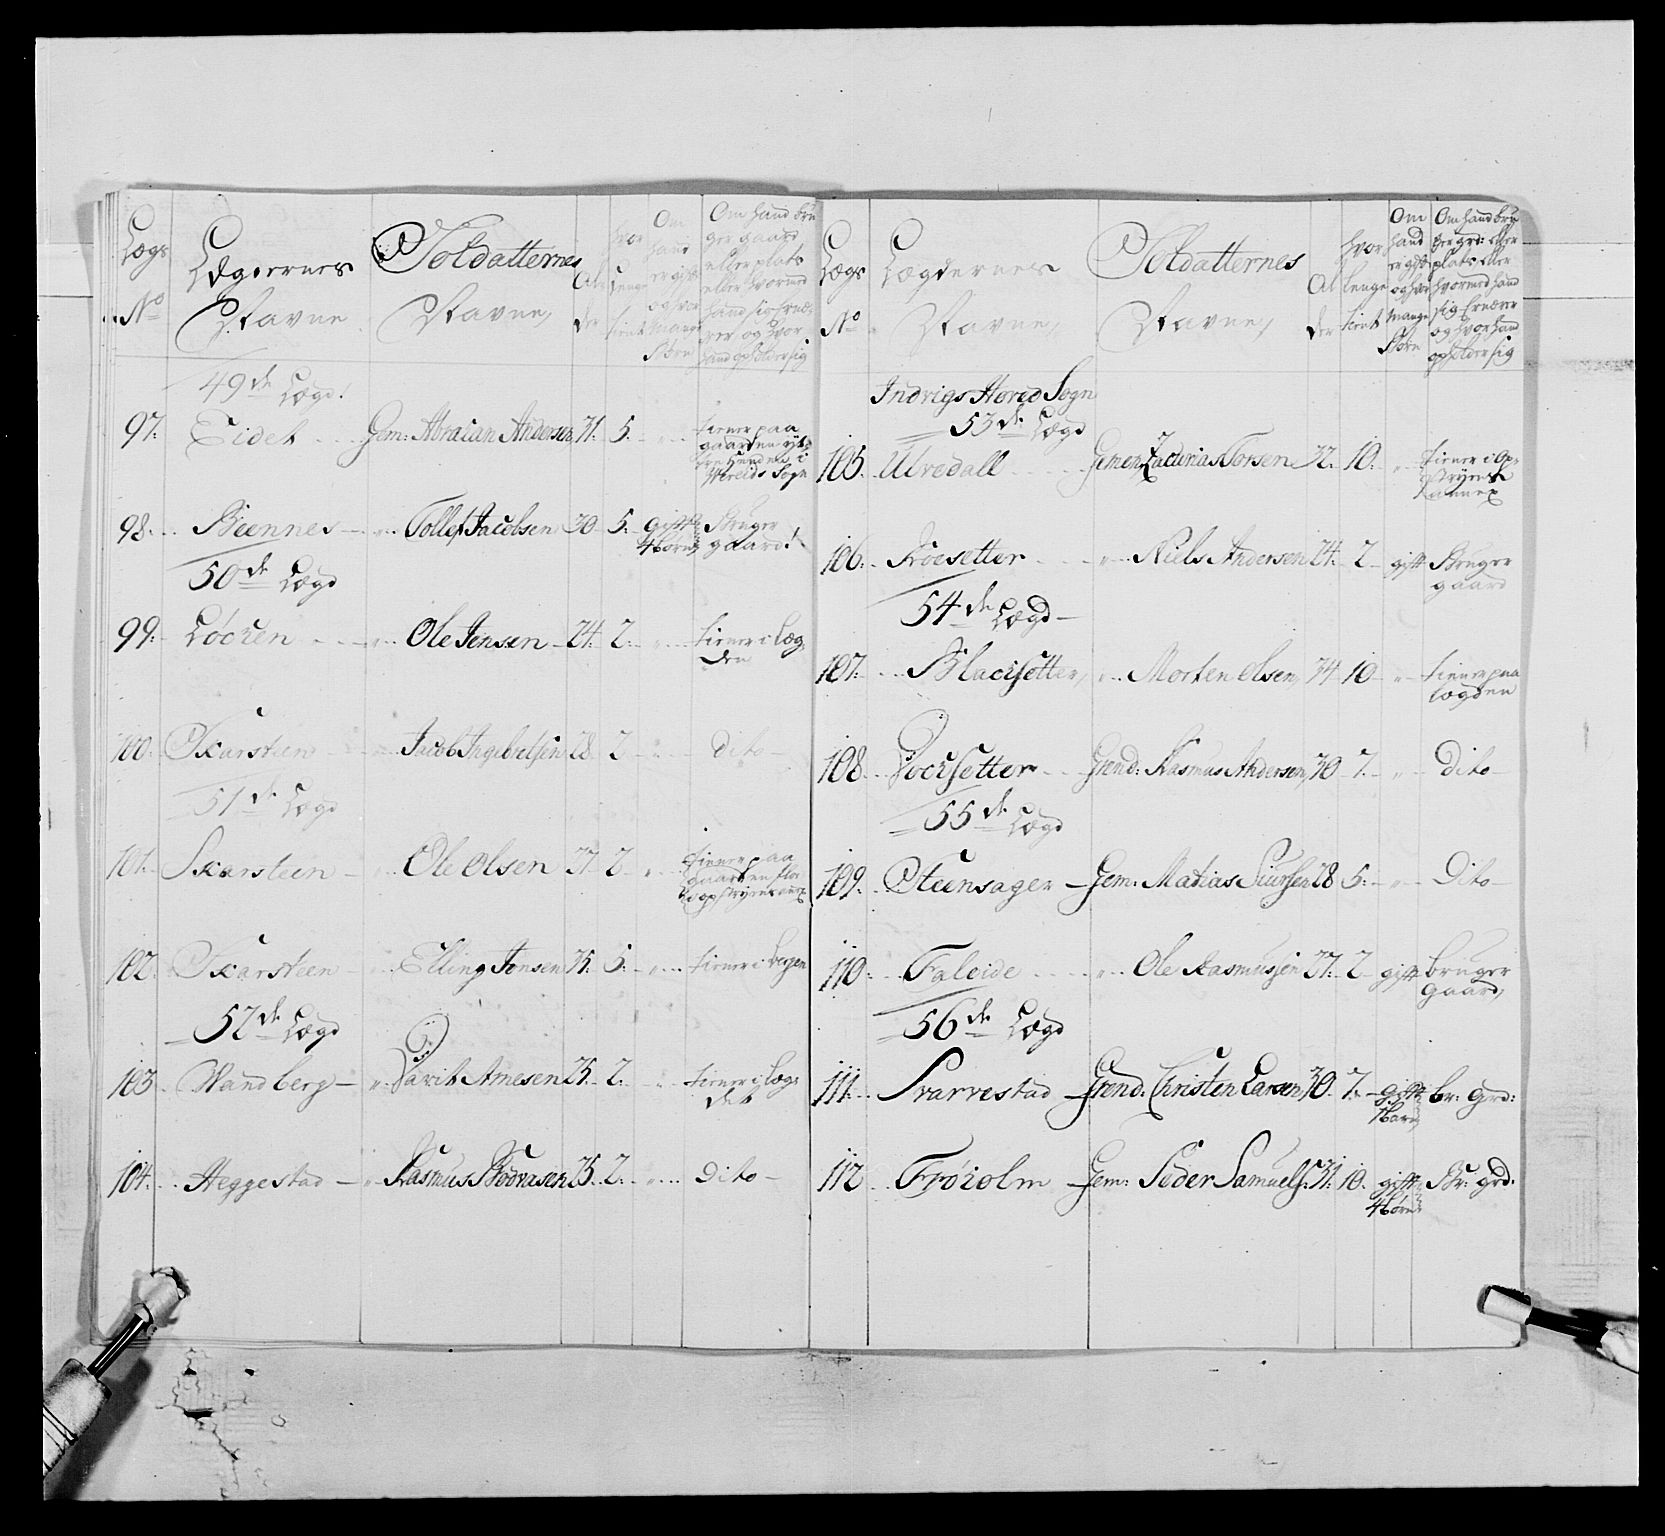 Lægs
No
Lægdernes
Navne
Soldatternes
Navne,
Al
der
hvor
Lenge
tient
Om
hand
er gift
og hvor
mange
Børn
Om hand bru
ger gaard
eller plats
eller hvormed
hand sig Ernæ,
rer og hvor
hand opholder sig
49de Lægd.
97. Eidet Gem: Abraian Andersen 31. 5. tiener paa
gaarden
i
Sogn
98. Beennes Tollef Jacobsen 30 5. gift Bruger
4 børn gaard
50de Lægd
99. Løcken Ole Jensen 24. 2. tiener i Læg,
den
100. Skarsteen Jacob Ingebrigtsen 28 2 dito
51de Lægd
101. Skarsteen Ole Olsen 27 2 tiener paa
gaarden
102. Skarsteen Elling Jensen 35. 5. tiener i Bergen
52de Lægd
103 Wandberg David Arnesen 25. 2. tiener i Læg,
det
104. Heggestad Rasmus 25. 2. Dito
Lægs
No
Lægdernes
Navne,
Soldatternes
Navne,
Al
der
hvor
lenge
tient
Om
hand
er gift
og hvor
mange
Børn
Om hand bru
ger grd: eller
plats eller
hvormed hand
sig Ernærer
og hvor hand
opholder sig
Indrigs Hored Sogn
53de Lægd
105. Ulvedall Gemen Zacharias Torsen 32. 10. tiener i Op,
stryens
annex
106. Roesetter Niels Andersen 24. 2 gift Bruger
gaard
54de Lægd
107. Blacksetter, Morten Olsen, 34 10 tiener paa
Lægden
108. Locksetter Grend: Rasmus Andersen, 30 7. Dito
55de Lægd
109. Steensager Gem: Matias Siursen 28 5. Dito
110. Faleide Ole Rasmusen 27. 2 gift bruger
gaard,
56de Lægd
111. Svarvestad Grend: Christen Larsen 30. 7. gift br: grd:
1 barn
112 Frøiolm Gem: Peder Samuels: 31. 10. gift Br: grd.
4 børn